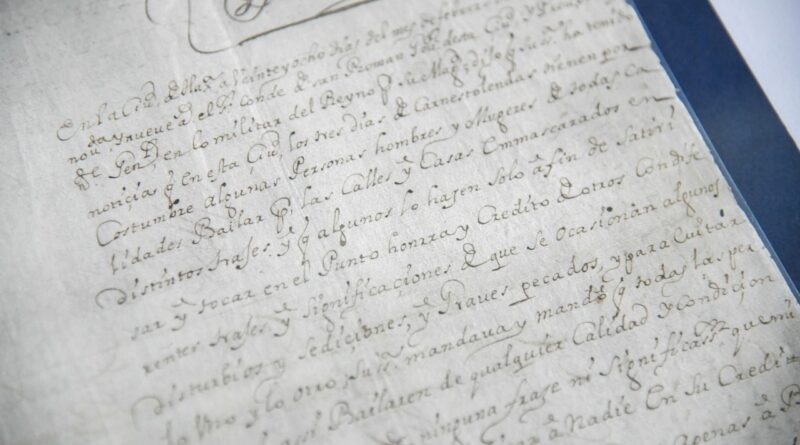 En la Ciud de Malaga a Veinte y ocho dias del mes de febrero
nov.ta y nueve a.s el S.r Conde de san Roman Gou.r desta Ciud y
g.l en lo militar del Reyno q su Mag.d dijo q su S.a ha tenido
noticia q en esta Ciud, los tres dias de Carnestolendas tienen por
Costumbre algunas Personas hombres y Mugeres de todas Ca
lidades Bailar p.r las Calles y Casas Emmascarados en
distintos trajes, y q algunos lo hasen solo a fin de satiri
sar y tocar en el Punto honrra y Credito de otros con dife
rentes trajes y significaciones de que se ocasionan algunos
disturbios y sediciones, y Graves pecados, y para evitar
lo Vno y lo otro, su S.a mandava y mandó q todas las per
assi Bailaren de qualquier Calidad y Condicion
ninguna frase ni significass.n que mi
a Nadie En su Credito
Penas a